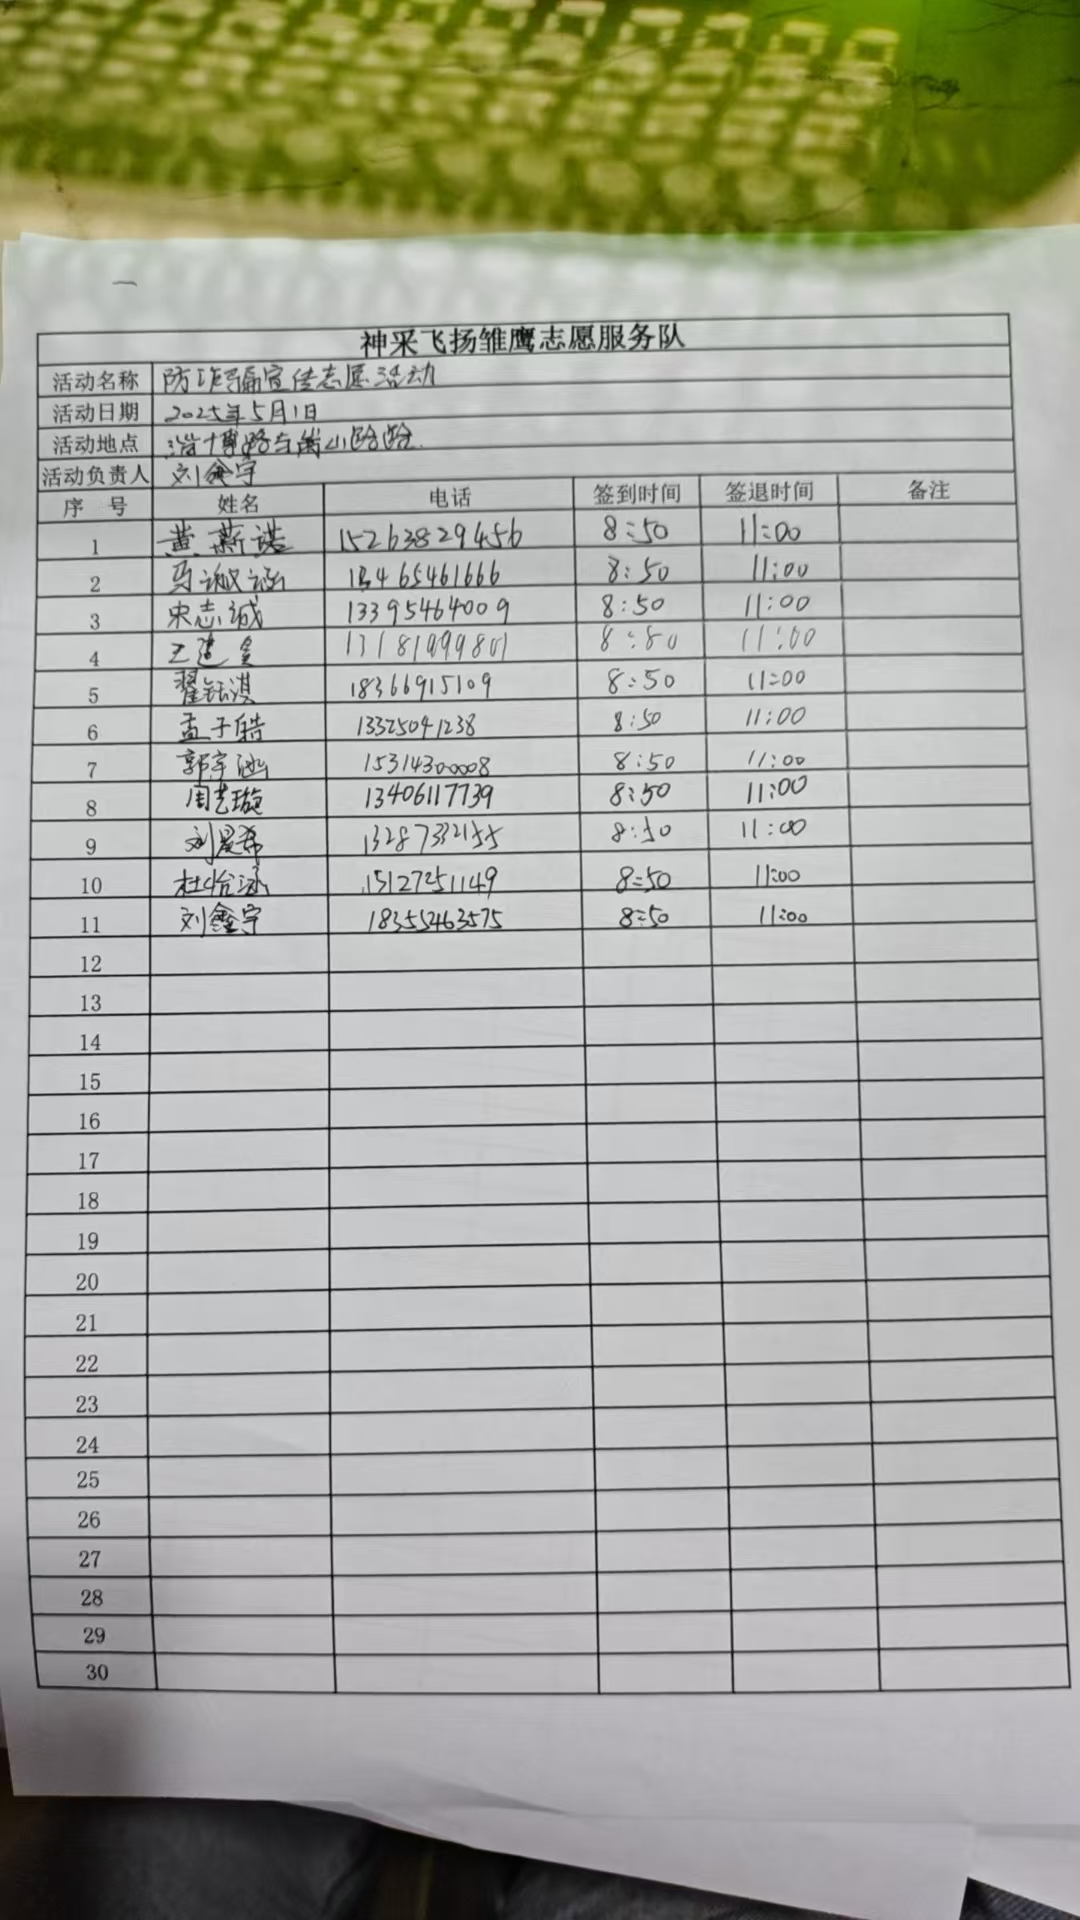 神采飞扬雏鹰志愿服务队
活动名称 防诈骗宣传志愿活动
活动日期 2025年5月1日
活动地点
活动负责人 刘鑫宇
序号 姓名 电话 签到时间 签退时间 备注
1 黄薪诺 15263829456 8:50 11:00
2 马淑涵 13465461666 8:50 11:00
3 宋志诚 13395464009 8:50 11:00
4 王 8:50 11:00
5 翟钰淇 18366915109 8:50 11:00
6 孟子皓 13325041238 8:50 11:00
7 郭宇涵 15314300008 8:50 11:00
8 周艺璇 13406117739 8:50 11:00
9 刘晨希 13287332155 8:50 11:00
10 杜怡涵 15127251149 8:50 11:00
11 刘鑫宇 18355463575 8:50 11:00
12
13
14
15
16
17
18
19
20
21
22
23
24
25
26
27
28
29
30